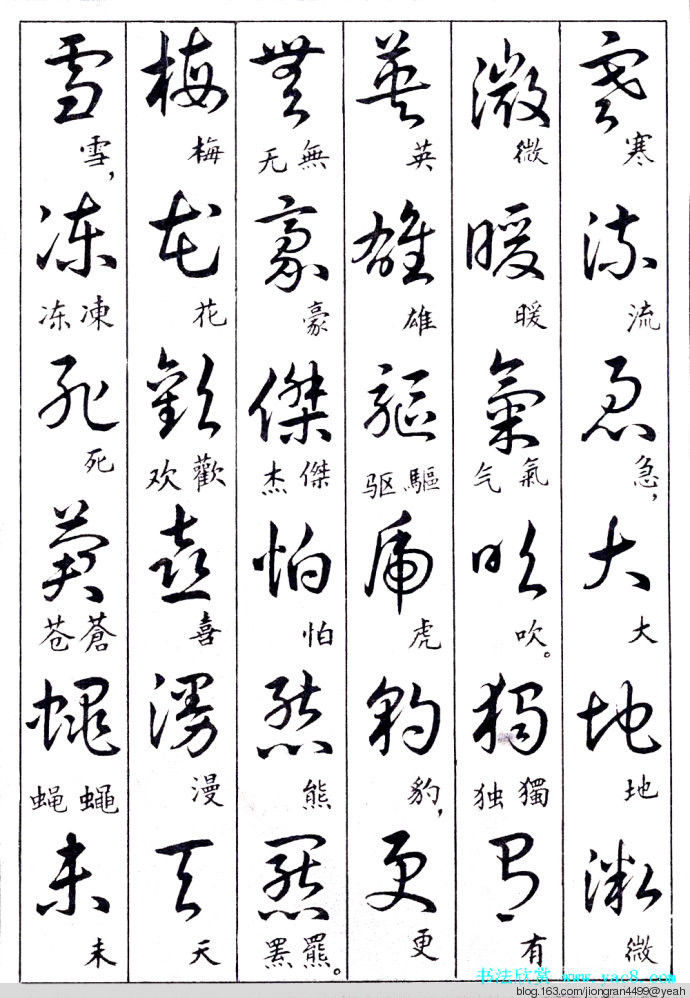 寒流急大地微
寒流急，大地微
微暖氣吹獨有
微暖氣气吹。獨独有
英雄驅虎豹更
英雄驅驱虎豹，更
無豪傑怕熊羆
無无豪傑杰怕熊羆罴。
梅花歡喜漫天
梅花歡欢喜漫天
雪凍死蒼蠅未
雪，凍冻死蒼苍蠅蝇未
书法欣赏 www.yac8.com
blog.163.com/jiongran4499@yeah